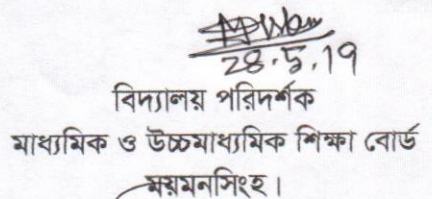 28.5.19
বিদ্যালয় পরিদর্শক
মাধ্যমিক ও উচ্চমাধ্যমিক শিক্ষা বোর্ড
ময়মনসিংহ।